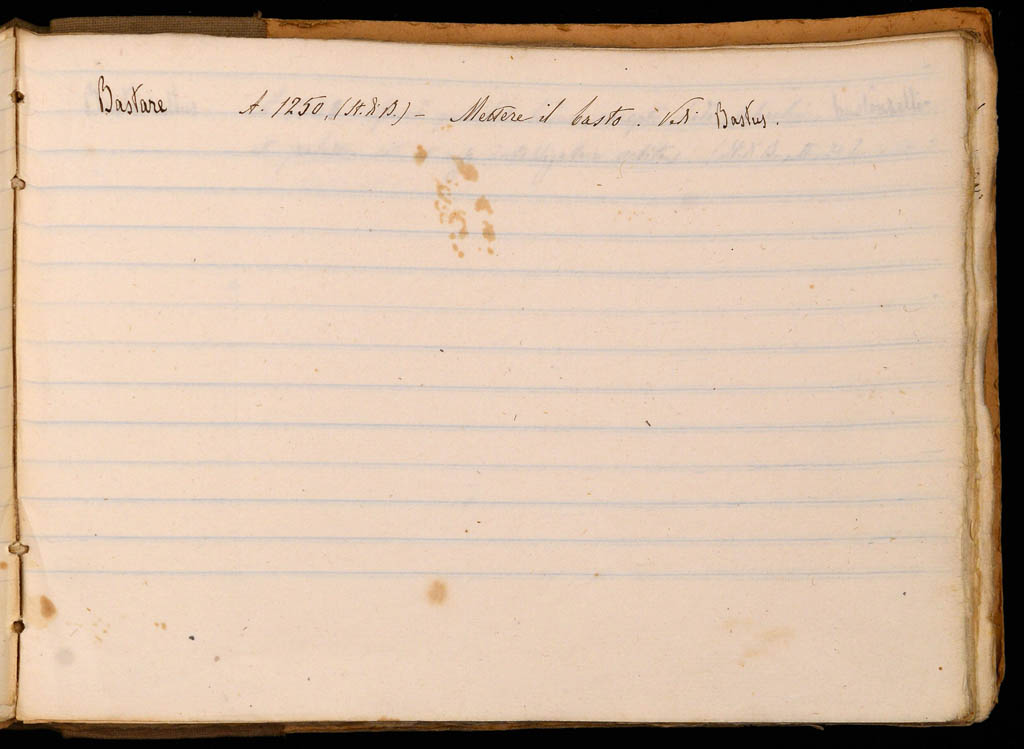 Bastare A. 1250, (St. d. B.) - Mettere il basto. Vedi Bastus.